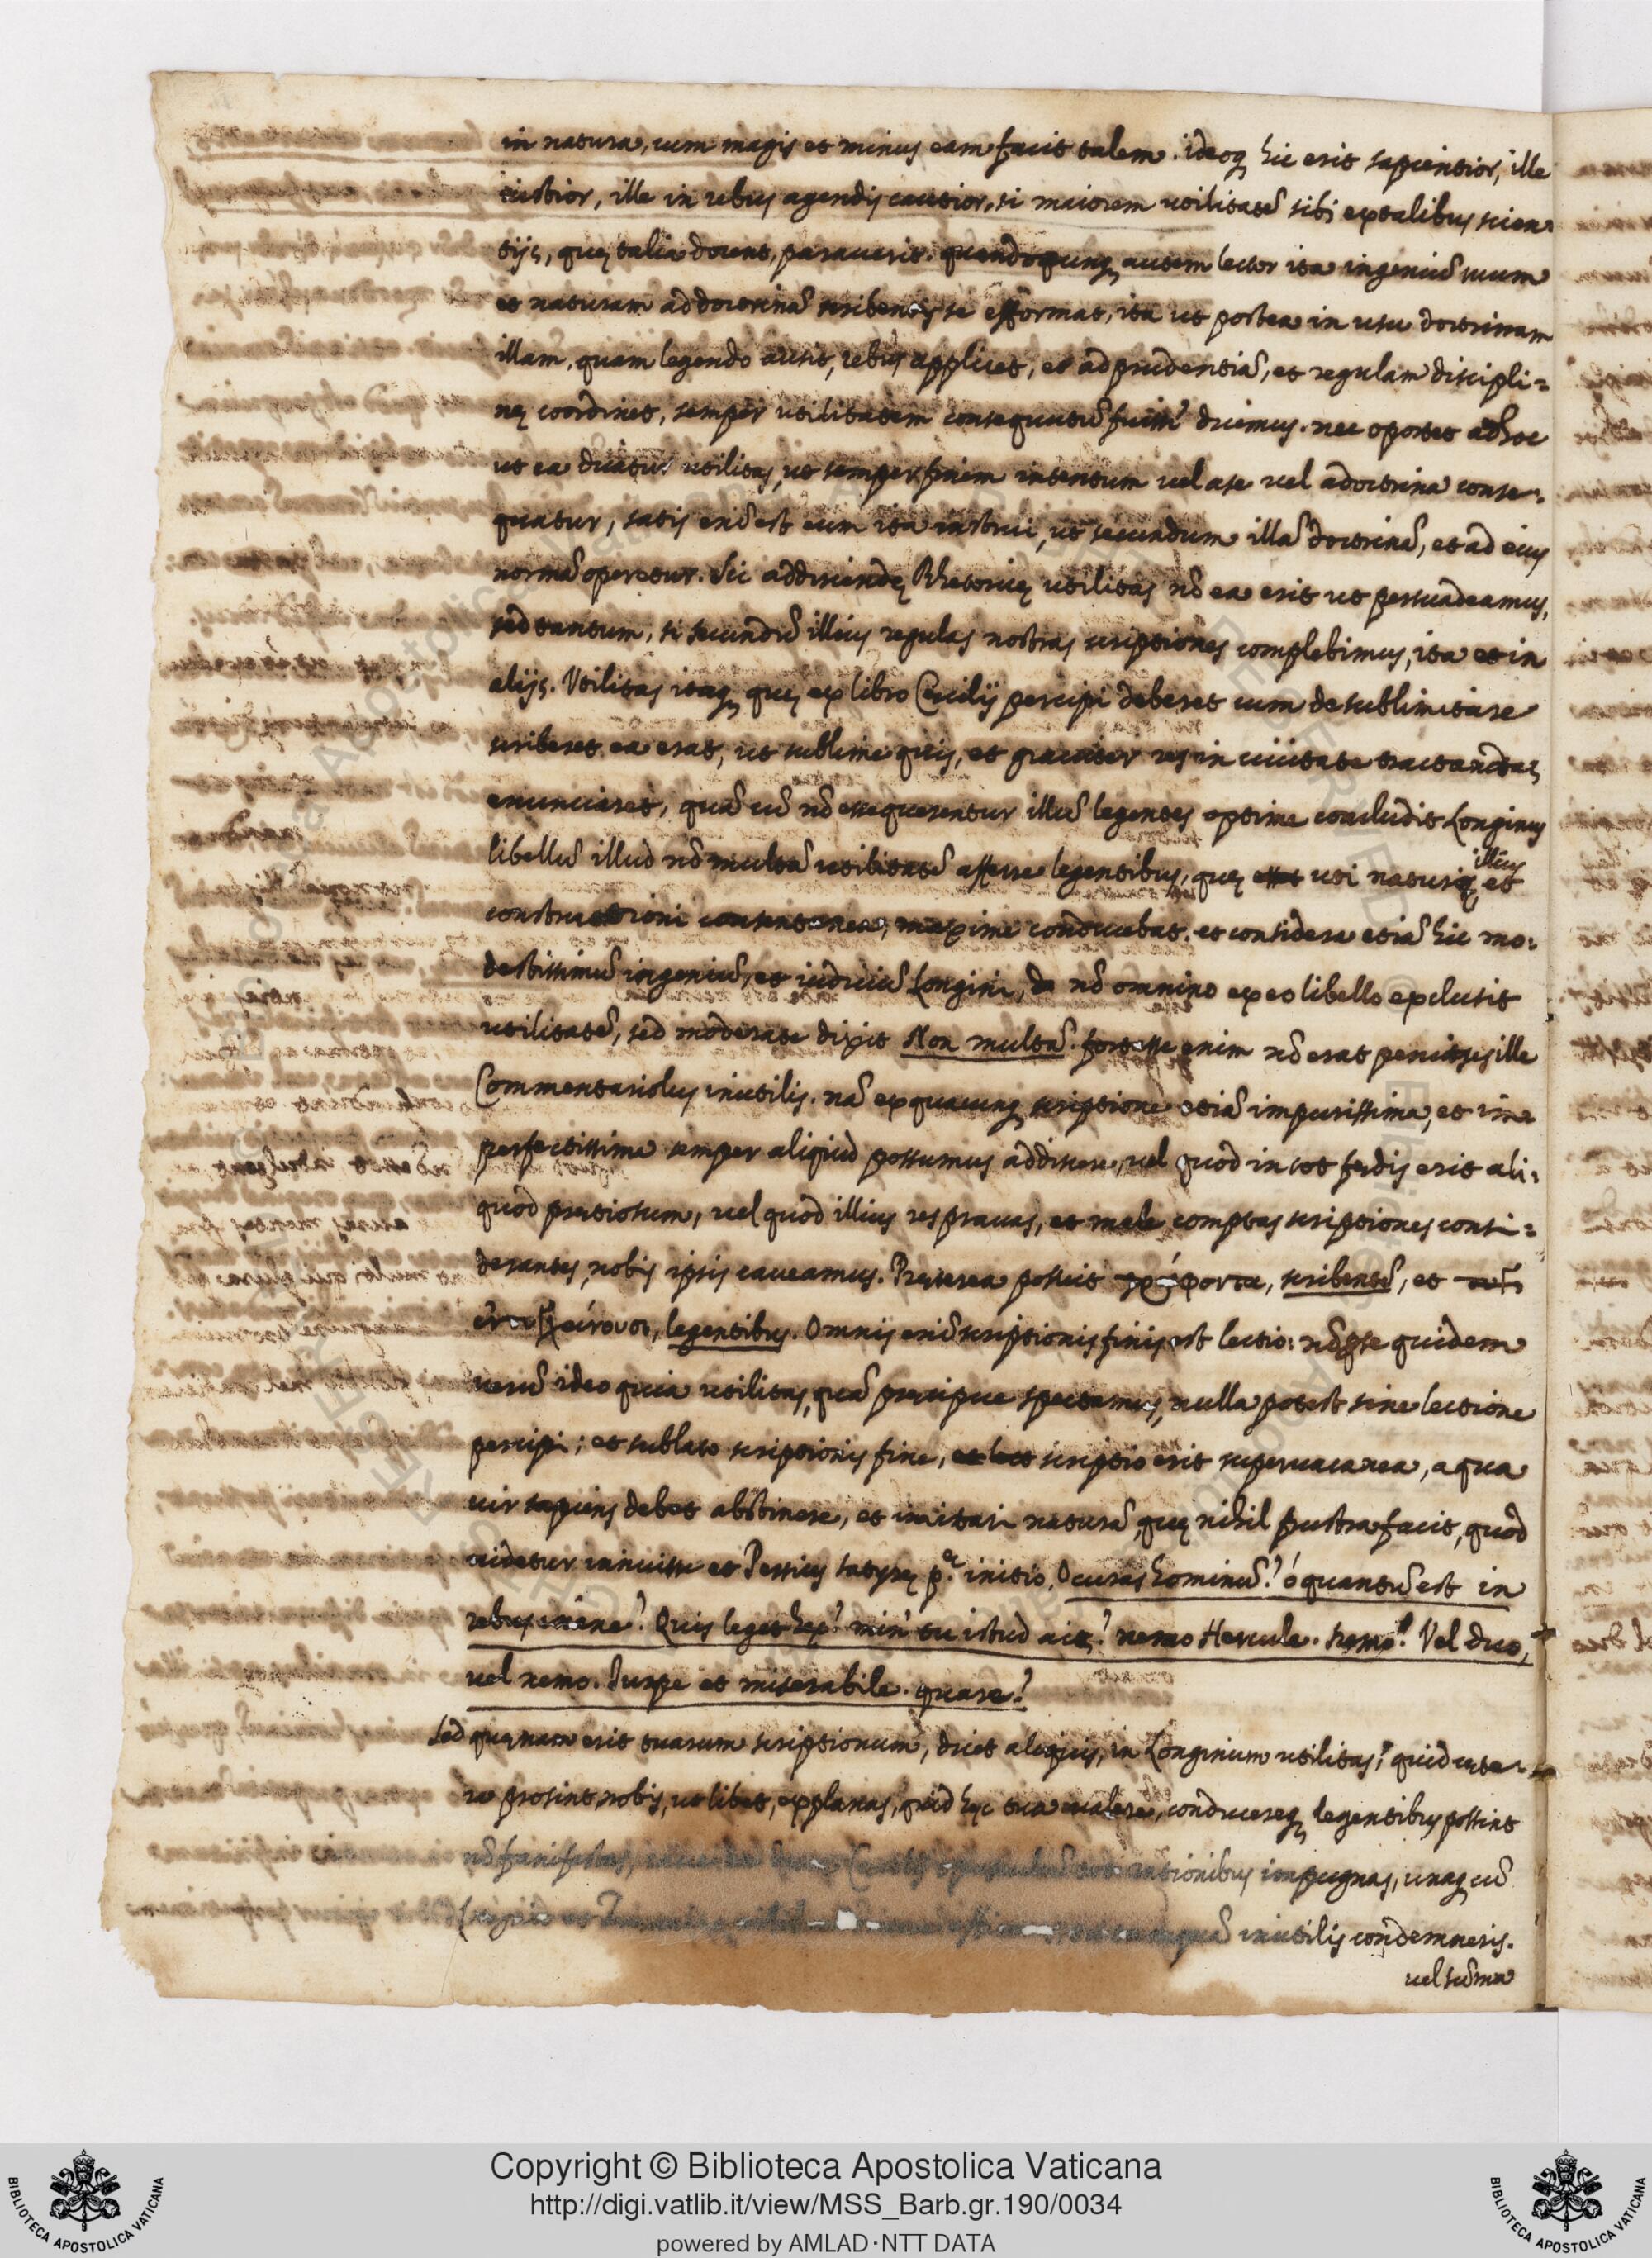 in natura, cum magis et minus eam facit talem. ideoq; hic erit sapientior, ille
iustior, ille in rebus agendis cautior, si maiorem utilitatē sibi ex talibus scien-
tijs, quę talia docent, parauerit. quandoqunq; autem lector ita ingeniū suum
et naturam ad doctrinā scribentis se efformat, ita ut postea in usu doctrinam
illam, quam legendo ausit, rebus applicet, et ad prudentiā, et regulam discipli=
nę coordinet, semper utilitatem consequutū fuisse dicimus. nec oportet ad hoc
ut ea dicatur utilitas, ut semper finem intentum uel a se uel a doctrina conse-
quatur, satis enī est eum ita instrui, ut secundum illā doctrinā, et ad eius
normā operetur. Sic addiscendę Rhetoricę utilitas nō ea erit ut persuadeamus,
sed tantum, si secundū illius regulas nostras scriptiones complebimus, ita et in
alijs. Vtilitas itaq; quę ex libro Cecilij percipi deberet cum de sublimitate
scriberet ea erat, ut sublime quis, et grauiter res in ciuitate tractandas
enunciaret, quā cū nō assequerentur illū legentes optime concludit Longinus
libellū illud nō multā utilitatē afferre legentibus, quę uti naturę illius, et
constructioni consentanea, maxime conducebat. et considera etiā hic mo-
destissimū ingeniū, et iudiciū Longini, nō omnino ex eo libello exclusit
utilitatē, sed moderate dixit Non multā. fortasse enim nō erat penitus ille
Commentariolus inutilis. nā ex quacunq; scriptione etiā impurissima, et im-
perfectissima semper aliquid possumus addiscere, uel quod in tot fędis erit ali-
quod pretiosum, uel quod illius res prauas, et male comptas scriptiones consi=
derantes, nobis ipsis caueamus. Pręterea posuit, scribentē, et
legentibus. Omnis enī scriptionis finis est lectio: quidem
uerū ideo quia utilitas, quā pręcipue spectamus, nulla potest sine lectione
percipi; et sublato scriptionis fine, scriptio erit superuacanea, a qua
uir sapiens debet abstinere, et imitari naturā, quę nihil frustra facit, quod
uidetur innuisse et Persius satyrę p.ᵃ initio, O curas hominū! ó quantū est in
rebus inane! Quis leget hęc? min' tu istud ais? nemo Hercule. nemo? Vel duo,
uel nemo. Turpe et miserabile. quare?
Sed quęnam erit tuarum scriptionum, dicet aliquis, in Longinum utilitas?
prosint nobis, ut libet, explanas, quid hęc tua ualere, conducereq; legentibus possint
impugnas, unaq; cū
inutilis condemneris.
uel suma
Copyright © Biblioteca Apostolica Vaticana
http://digi.vatlib.it/view/MSS_Barb.gr.190/0034
powered by AMLAD·NTT DATA
BIBLIOTECA APOSTOLICA VATICANA
BIBLIOTECA APOSTOLICA VATICANA